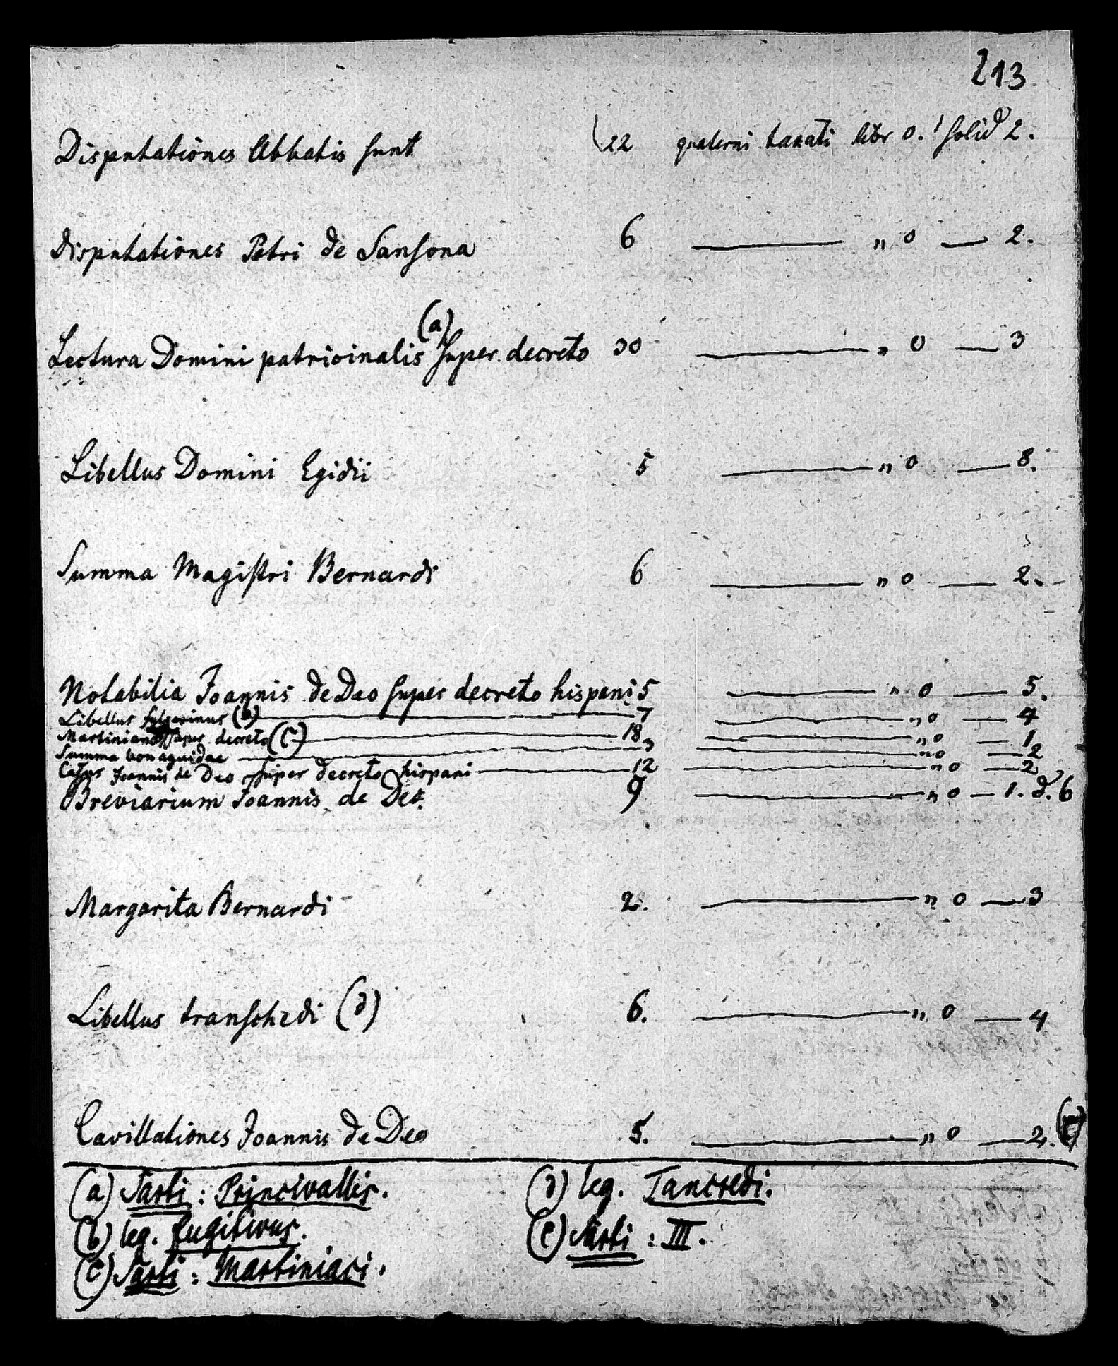 213
Disputationes Abbatis sunt 22 quaterni taxati libr 0. solid 2.
Disputationes Petri de Sansona 6 — „ 0 — 2.
Lectura Domini patricinalis (a) super decreto 30 — „ 0 — 3
Libellus Domini Egidii 5 — „ 0 — 8.
Summa Magistri Bernardi 6 — „ 0 — 2.
Notabilia Joannis de Deo super decreto hispani 5 — „ 0 — 5.
Libellus (b) — 7 — „ 0 — 4
Martiniano super decreto (c) — 18 — „ 0 — 1
Summa bonaguidae — 3 — „ 0 — 2
Casus Joannis de Deo super decreto hispani — 12 — „ 0 — 2
Breviarium Joannis de Deo. 9 — „ 0 — 1. d. 6
Margarita Bernardi 2. — „ 0 — 3
Libellus transchedi (d) 6. — „ 0 — 4
Cavillationes Joannis de Deo 5. — „ 0 — 2. (e)
(a) Sarti: Princivallis. (d) leg. Tancredi.
(b) leg. fugitivus. (e) Sarti: III.
(c) Sarti: Martiniaci.